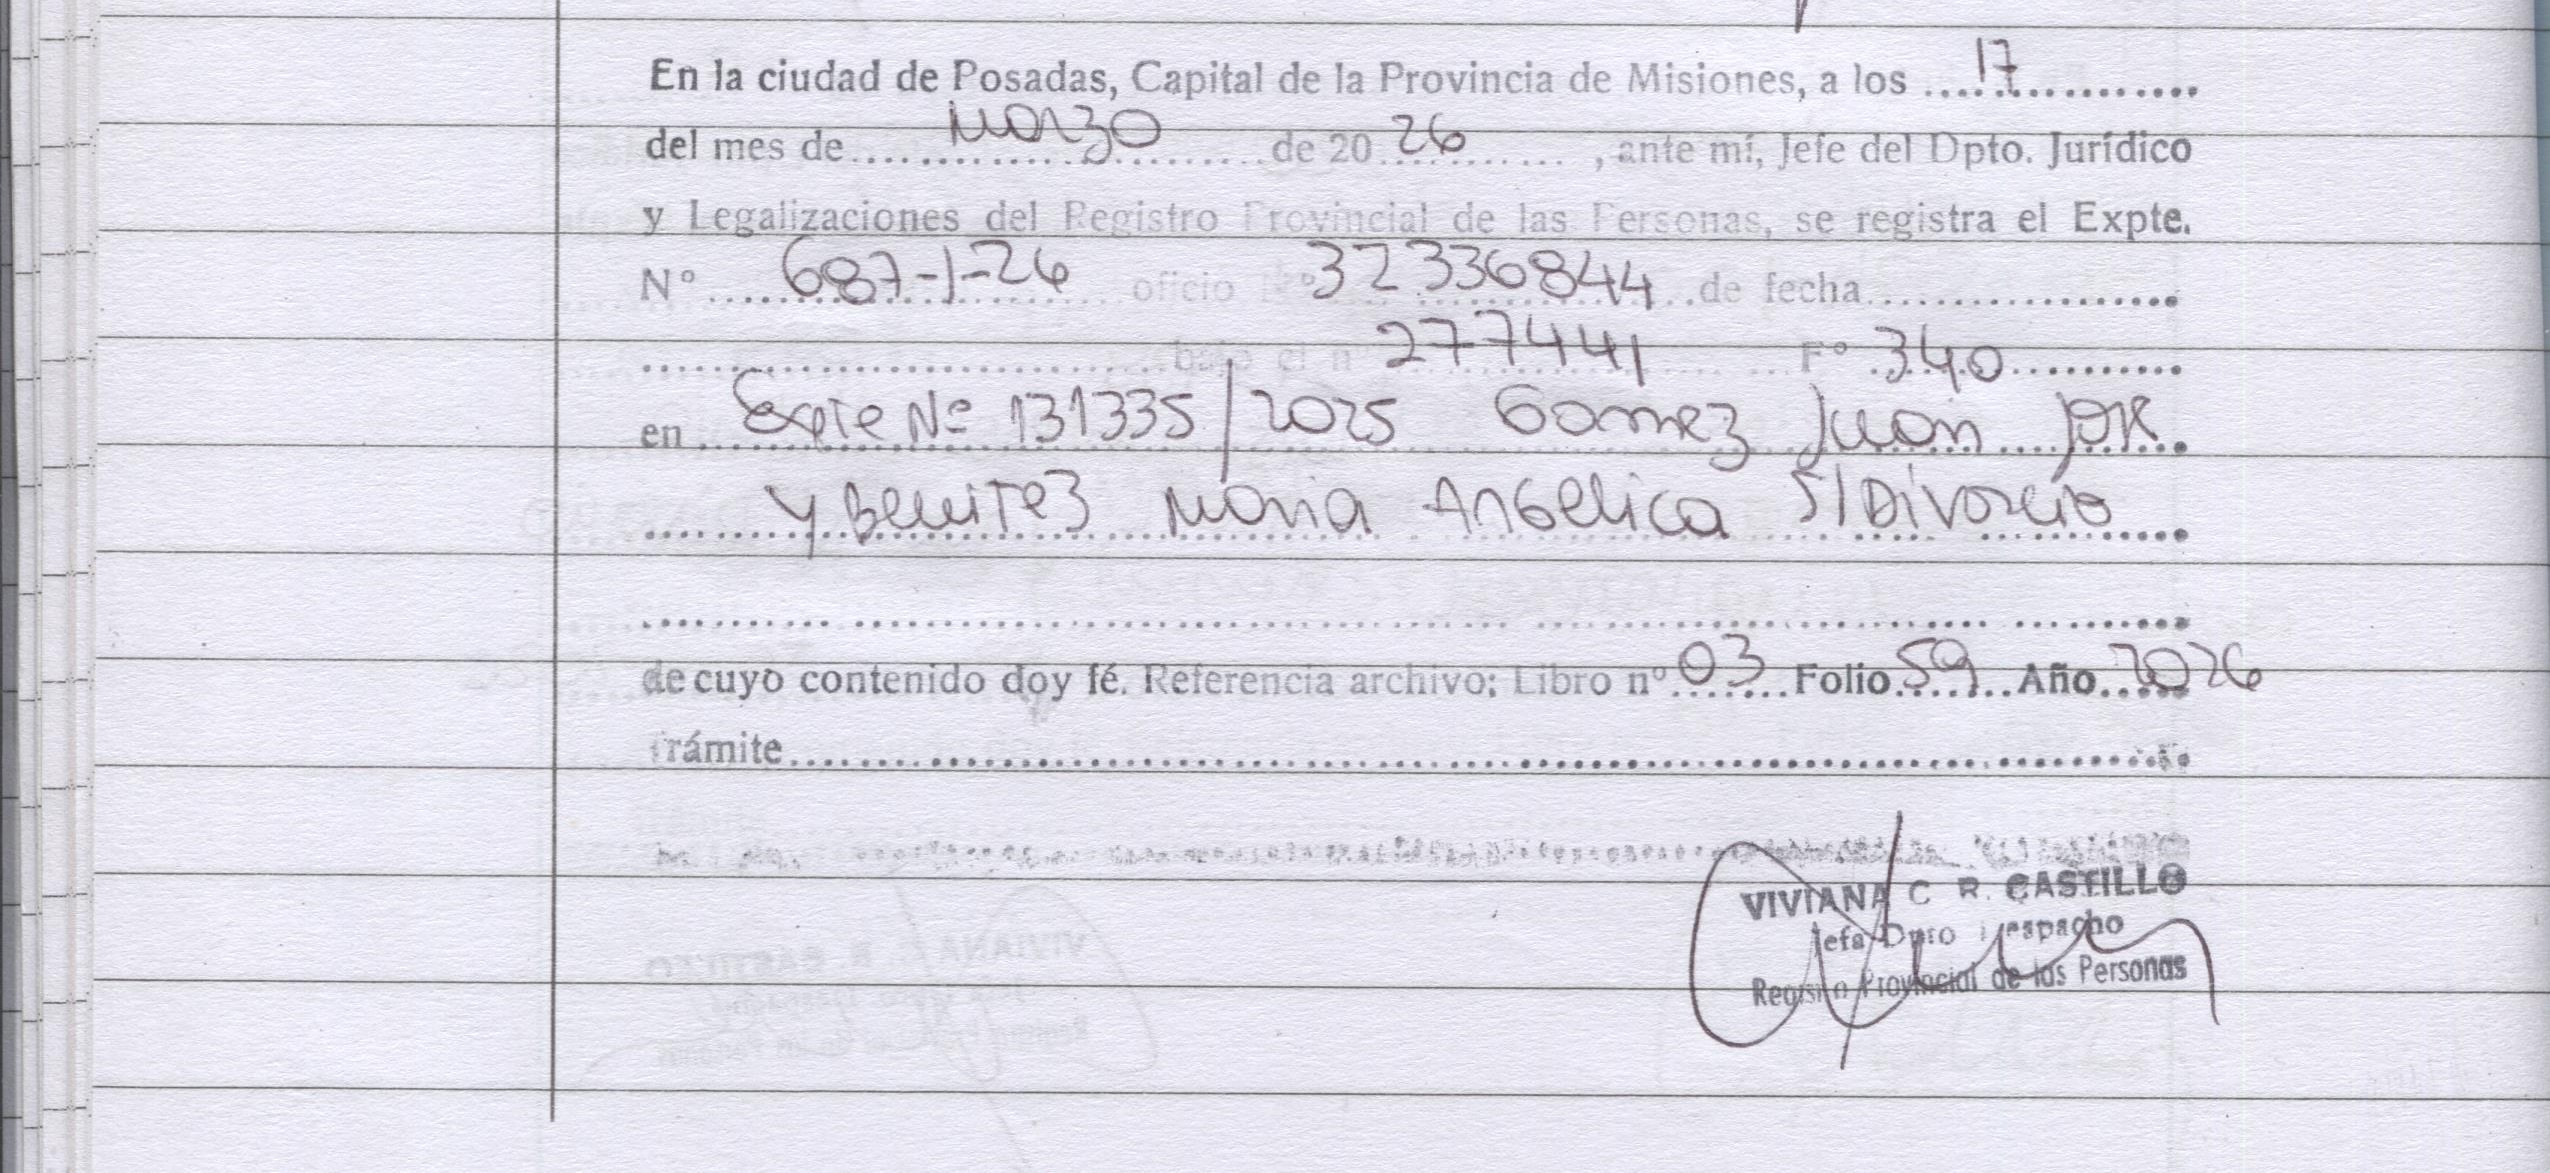 En la ciudad de Posadas, Capital de la Provincia de Misiones, a los 17
del mes de Marzo de 20 26, ante mí, Jefe del Dpto. Jurídico
y Legalizaciones del Registro Provincial de las Personas, se registra el Expte.
N° 687-1-26 oficio N° 32336844 de fecha
bajo el n° 277441 F° 340
en Expte Nº 131335/2025 Gomez Juan Jose
y Benitez Maria Angelica S/Divorcio
de cuyo contenido doy fé. Referencia archivo: Libro nº 03 Folio 59 Año 2026
Trámite
VIVIANA C R. CASTILLO
Jefa Dpto Despacho
Registro Provincial de las Personas